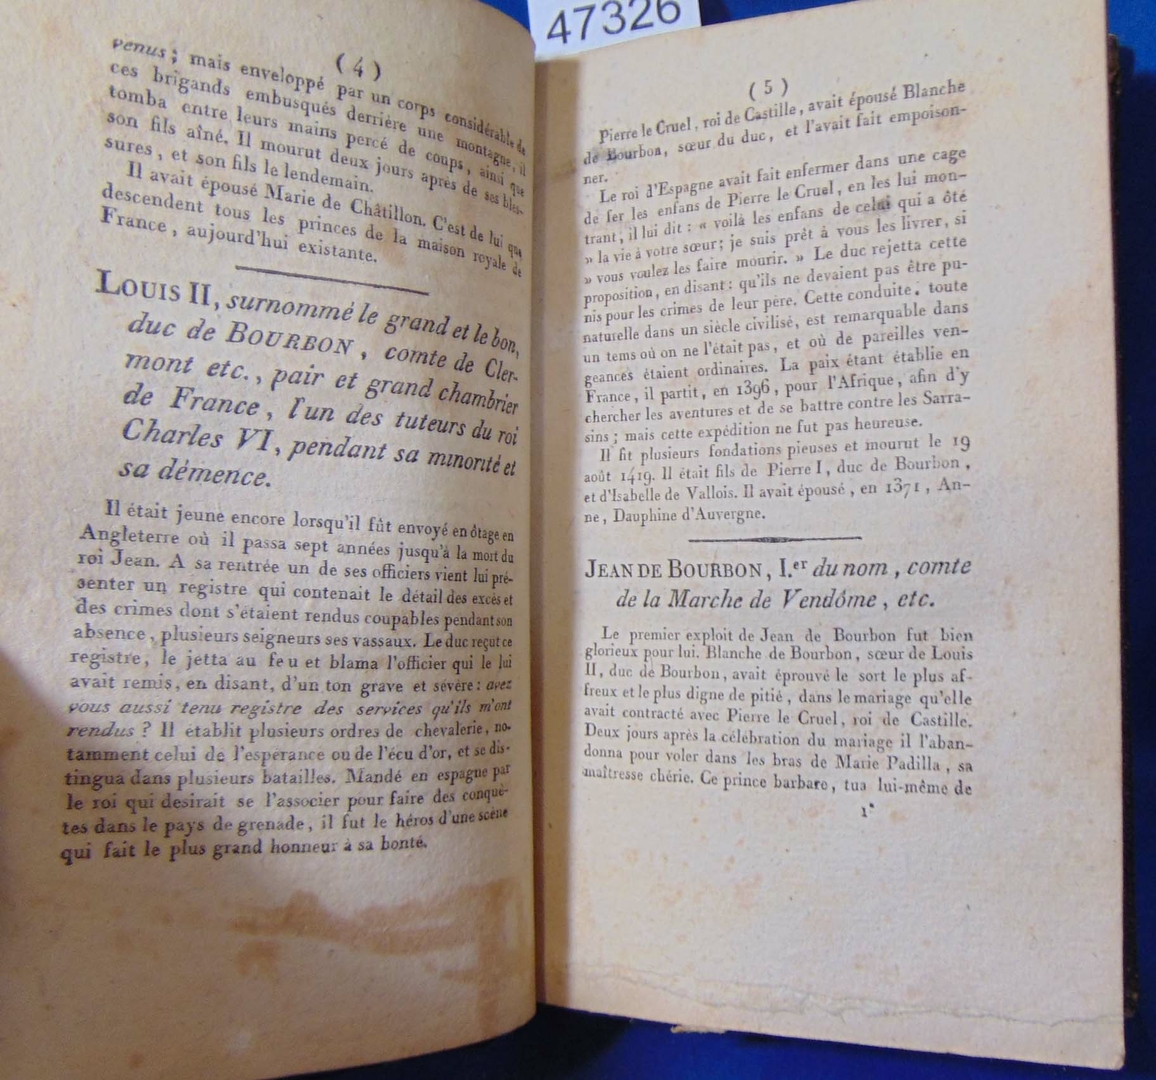 47326
( 4 )
venus ; mais enveloppé par un corps considérable de
ces brigands embusqués derrière une montagne, il
tomba entre leurs mains percé de coups, ainsi que
son fils aîné. Il mourut deux jours après de ses bles-
sures, et son fils le lendemain.
Il avait épousé Marie de Châtillon. C'est de lui que
descendent tous les princes de la maison royale de
France, aujourd'hui existante.
LOUIS II, surnommé le grand et le bon,
duc de BOURBON, comte de Cler-
mont etc., pair et grand chambrier
de France, l'un des tuteurs du roi
Charles VI, pendant sa minorité et
sa démence.
Il était jeune encore lorsqu'il fût envoyé en ôtage en
Angleterre où il passa sept années jusqu'à la mort du
roi Jean. A sa rentrée un de ses officiers vient lui pré-
senter un registre qui contenait le détail des excès et
des crimes dont s'étaient rendus coupables pendant son
absence, plusieurs seigneurs ses vassaux. Le duc reçut ce
registre, le jetta au feu et blama l'officier qui le lui
avait remis, en disant, d'un ton grave et sévère : avez
vous aussi tenu registre des services qu'ils m'ont
rendus ? Il établit plusieurs ordres de chevalerie, no-
tamment celui de l'espérance ou de l'écu d'or, et se dis-
tingua dans plusieurs batailles. Mandé en espagne par
le roi qui desirait se l'associer pour faire des conquê-
tes dans le pays de grenade, il fut le héros d'une scène
qui fait le plus grand honneur à sa bonté.
( 5 )
Pierre le Cruel, roi de Castille, avait épousé Blanche
de Bourbon, sœur du duc, et l'avait fait empoison-
ner.
Le roi d'Espagne avait fait enfermer dans une cage
de fer les enfans de Pierre le Cruel, en les lui mon-
trant, il lui dit : « voilà les enfans de celui qui a ôté
» la vie à votre sœur; je suis prêt à vous les livrer, si
» vous voulez les faire mourir. » Le duc rejetta cette
proposition, en disant : qu'ils ne devaient pas être pu-
nis pour les crimes de leur père. Cette conduite, toute
naturelle dans un siècle civilisé, est remarquable dans
un tems où on ne l'était pas, et où de pareilles ven-
geances étaient ordinaires. La paix étant établie en
France, il partit, en 1396, pour l'Afrique, afin d'y
chercher les aventures et de se battre contre les Sarra-
sins ; mais cette expédition ne fut pas heureuse.
Il fit plusieurs fondations pieuses et mourut le 19
août 1419. Il était fils de Pierre I, duc de Bourbon,
et d'Isabelle de Vallois. Il avait épousé, en 1371, An-
ne, Dauphine d'Auvergne.
JEAN DE BOURBON, I.er du nom, comte
de la Marche de Vendôme, etc.
Le premier exploit de Jean de Bourbon fut bien
glorieux pour lui. Blanche de Bourbon, sœur de Louis
II, duc de Bourbon, avait éprouvé le sort le plus af-
freux et le plus digne de pitié, dans le mariage qu'elle
avait contracté avec Pierre le Cruel, roi de Castille.
Deux jours après la célébration du mariage il l'aban-
donna pour voler dans les bras de Marie Padilla, sa
maîtresse chérie. Ce prince barbare, tua lui-même de
1*